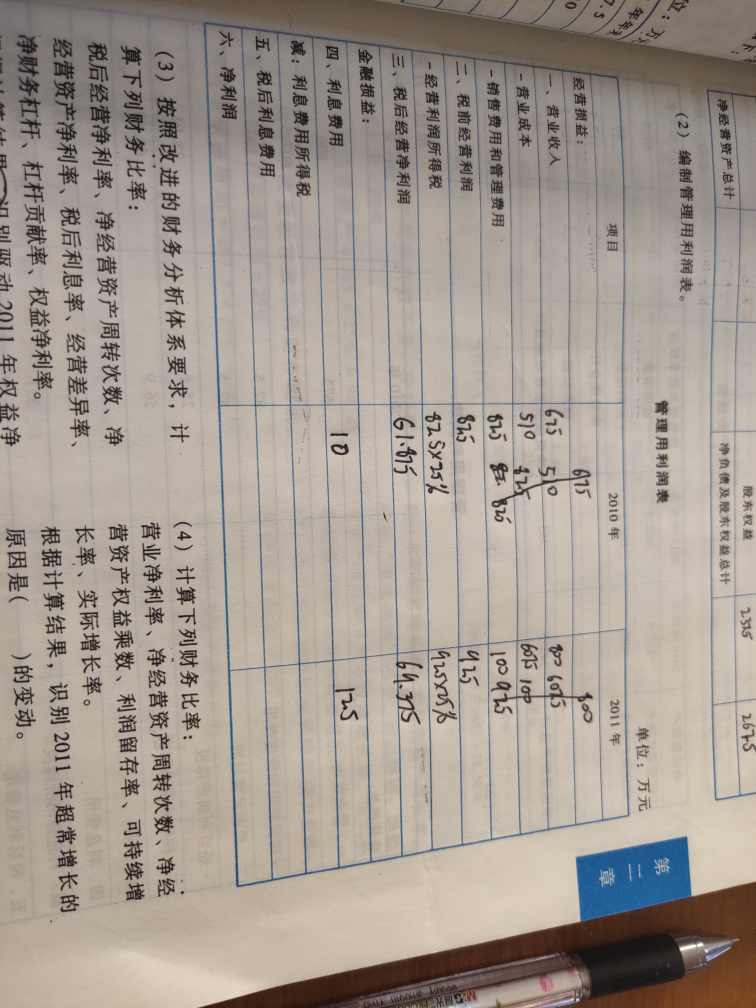 净经营资产总计
股东权益 2325 2675
净负债及股东权益总计
(2) 编制管理用利润表。
管理用利润表
单位:万元
项目 2010 年 2011 年
经营损益: 675 800
一、营业收入 675 510 800 607.5
-营业成本 510 82.5 607.5 100
-销售费用和管理费用 82.5 82.5 100 92.5
二、税前经营利润 82.5 92.5
-经营利润所得税 82.5×25% 92.5×25%
三、税后经营净利润 61.875 69.375
金融损益:
四、利息费用 10 12.5
减:利息费用所得税
五、税后利息费用
六、净利润
第二章
(3) 按照改进的财务分析体系要求,计
算下列财务比率:
税后经营净利率、净经营资产周转次数、净
经营资产净利率、税后利息率、经营差异率、
净财务杠杆、杠杆贡献率、权益净利率。
识别驱动 2011 年权益净
(4) 计算下列财务比率:
营业净利率、净经营资产周转次数、净经
营资产权益乘数、利润留存率、可持续增
长率、实际增长率。
根据计算结果,识别 2011 年超常增长的
原因是( )的变动。
M&G